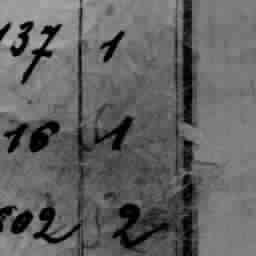 137 1
16 1
802 2